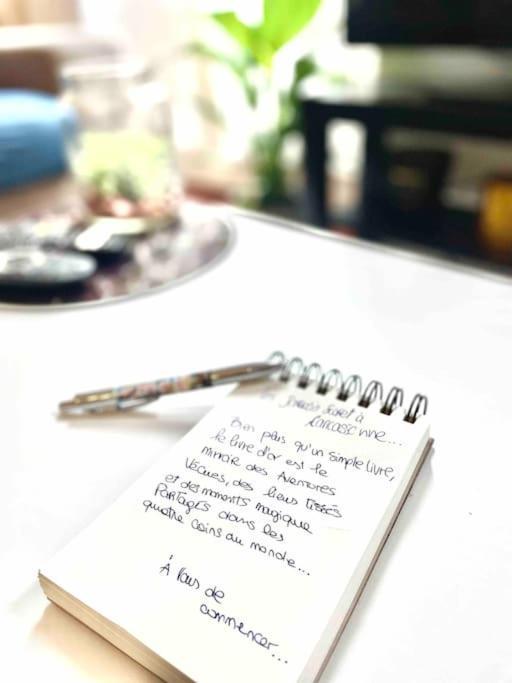 Secret à
Carcassonne...
Bien plus qu'un simple livre,
le livre d'or est le
miroir des Avemores
Vécues, des liens Tissés
et des moments magique
Partagés dans les
quatre coins du monde...
À Vous de
commencer...